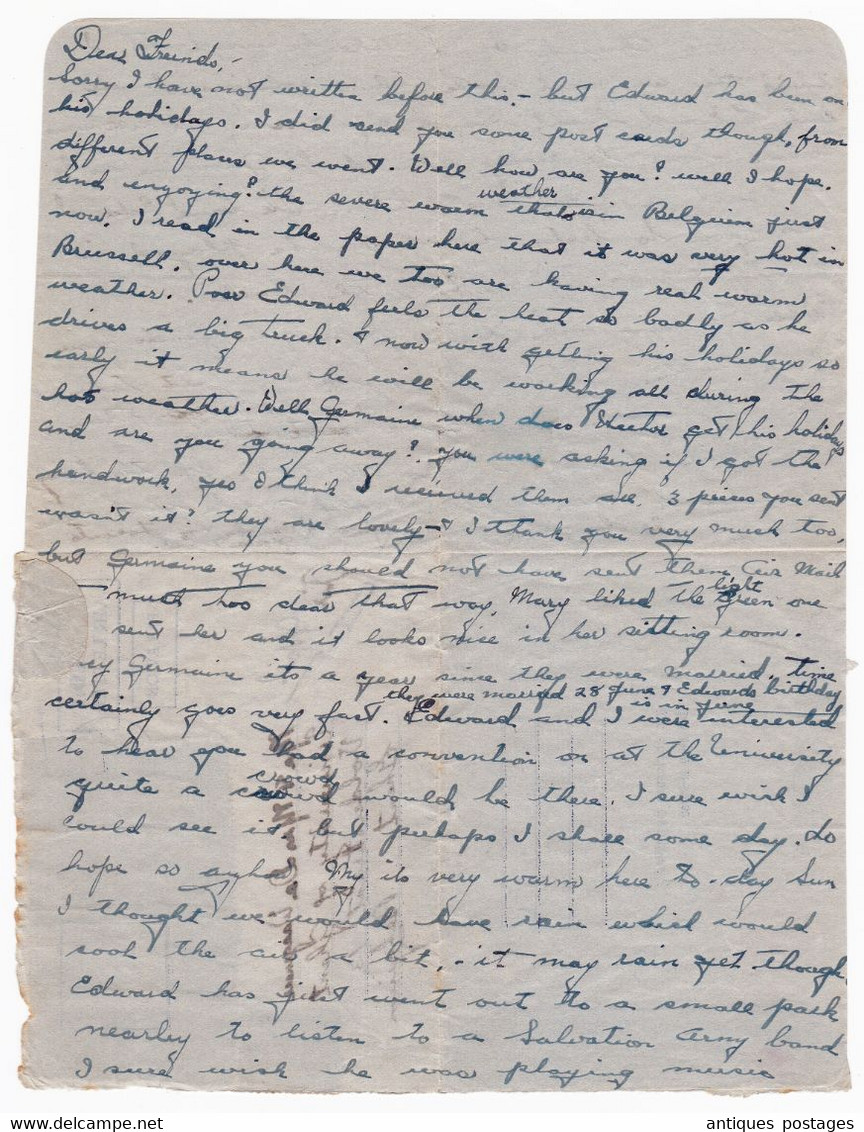 Dear Freinds,-
Sorry I have not written before this.- but Edward has been on
his holidays. I did send you some post cards though, from
different places we went. Well how are you? well I hope.
and enjoying? the severe warm weather that is in Belguim just
now. I read in the paper here that it was very hot in
Brussell. over here we too are having real warm
weather. Poor Edward feels the heat so badly as he
drives a big truck. & now with getting his holidays so
early it means he will be working all during the
hot weather. Well Germaine when does Hector get his holidays
and are you going away? you were asking if I got the
handwork, yes I think I recieved them all, 3 pieces you sent
wasn't it? they are lovely & I thank you very much too,
but Germaine you should not have sent them Air Mail
much too dear that way, Mary liked the light green one
sent her and it looks nice in her sitting room.
Germaine its a year since they were married, time
they were married 28 June & Edwards birthday is in June
certainly goes very fast. Edward and I were interested
to hear you had a convention on at the University
quite a crowd would be there. I sure wish I
could see it, but perhaps I shall some day. do
hope so anyhow. My its very warm here to-day Sun
I thought we would have rain which would
cool the air a bit, - it may rain yet though.
Edward has just went out to a small park
nearley to listen to a Salvation Army band
I sure wish he was playing music
antiques postages